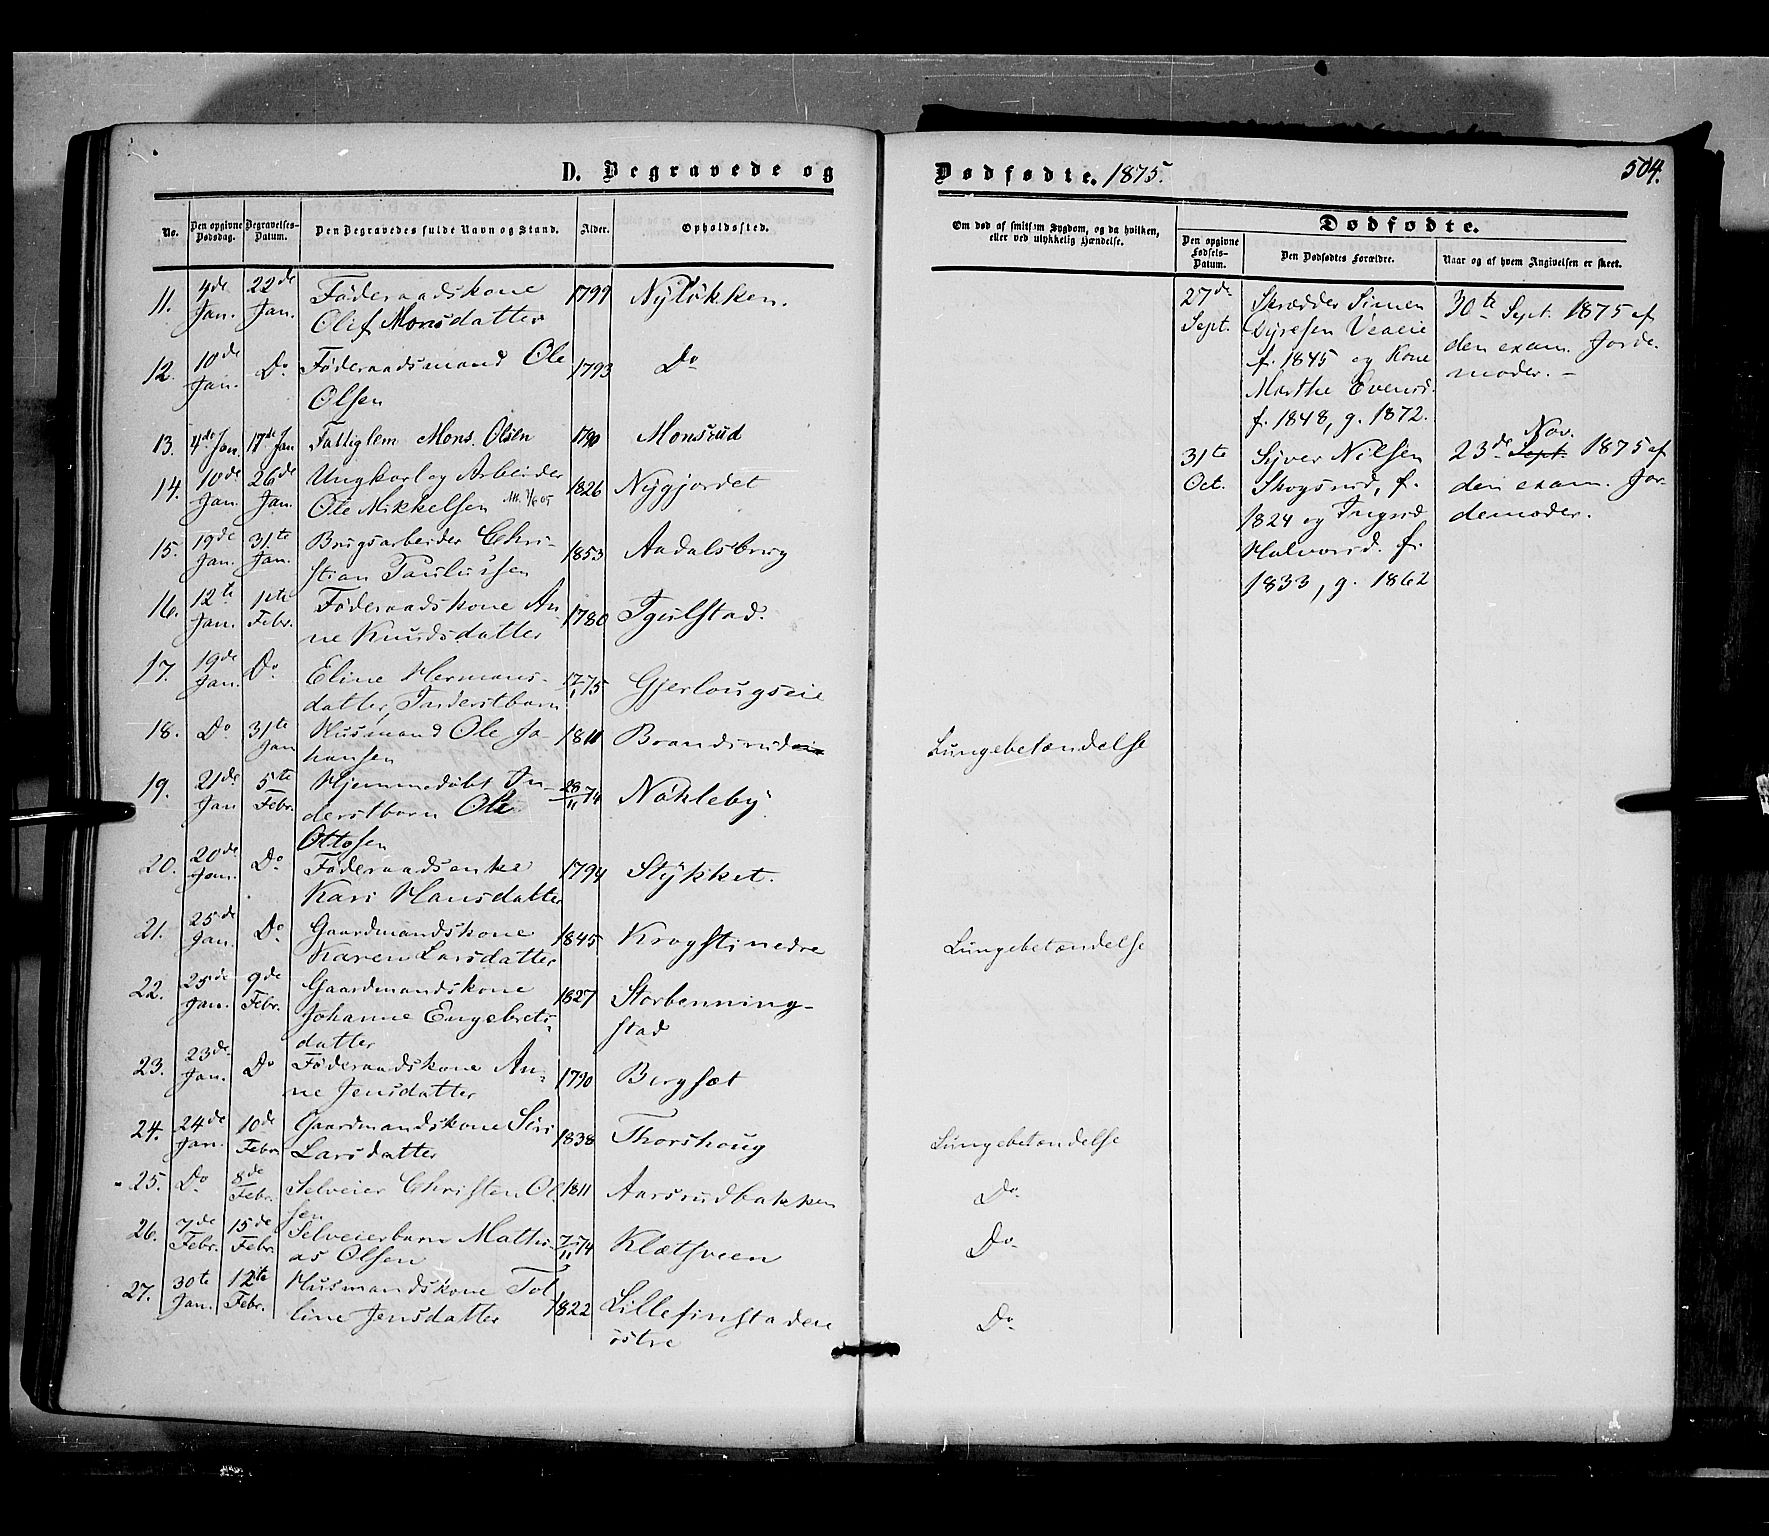 D. Begravede og
No.
Den opgivne Dødsdag.
Begravelses-Datum.
Den Begravedes fulde Navn og Stand.
Alder.
Opholdssted.
11. 4de Jan. 22de Jan. Føderaadskone 1799 Nyløkken.
Olif Monsdatter
12. 10de Jan. Do Føderaadsmand Ole 1793 Do
Olsen
13. 4de Jan. 17de Jan Fattiglem Mons Olsen 1790 Monsrud
14. 10de Jan. 26de Jan. Ungkarl og Arbeider 1826 Nygjordet
Ole Mikkelsen
15. 19de Jan. 31te Jan. Brugsarbeider Chri- 1853 Aadalsbrug
stian Paulussen
16. 12te Jan. 1ste Febr. Føderaadskone An 1780 Tjulstad.
ne Knudsdatter
17. 19de Jan. Do Eline Hermans- 17/1 75 Gjerlougseie
datter, Inderstbarn
18. Do 31te Jan Husmand Ole Jo- 1811 Brandsrud
hansen
19. 21de Jan 5te Febr. Hjemmedøbt In- 28/11 74 Nökleby
derstbarn Ole
Ottosen
20. 20de Jan. Do Føderaadsenke 1794 Stykket.
Kari Hansdatter
21. 25de Jan. Do Gaardmandskone 1845 Krogsti nedre
Karen Larsdatter
22. 25de Jan. 9de Febr. Gaardmandskone 1827 Storbenning-
Johanne Engebrets- stad
datter
23. 23de Jan. Do Føderaadskone An- 1790 Bergsæt
ne Jensdatter
24. 24de Jan. 10de Febr Gaardmandskone Siri 1838 Thorshoug
Larsdatter
25. Do 8de Febr. Selveier Christen Ol 1811 Aarsrudbakken
sen
26. 7de Febr. 15de Febr Selveierbarn Mathi 7/11 74 Klætsveen
as Olsen
27. 30te Jan. 12te Febr. Husmandskone Tol 1822 Lillefinstadeie
line Jensdatter östre
Dødfødte. 1875.
504.
Om død af smitsom Sygdom, og da hvilken,
eller ved ulykkelig Hændelse.
Dødfødte.
Den opgivne Fødsels-Datum.
Den Dødfødtes Forældre.
Naar og af hvem Angivelsen er skeet.
Lungebetændelse
Lungebetændelse
Lungebetændelse
Do
Do
Do
27de Sept.
Skrædder Simen
Dyresen
f. 1845 og Kone
Marthe Evensd.
f. 1848, g. 1872.
30te Sept. 1875 af
den exam. Jorde-
moder. -
31te Oct.
Syver Nilsen
Skogsrud, f.
1824 og Ingrid
Halvorsd. f.
1833, g. 1862
Nov.
23de Sept. 1875 af
den exam. Jor-
demoder.